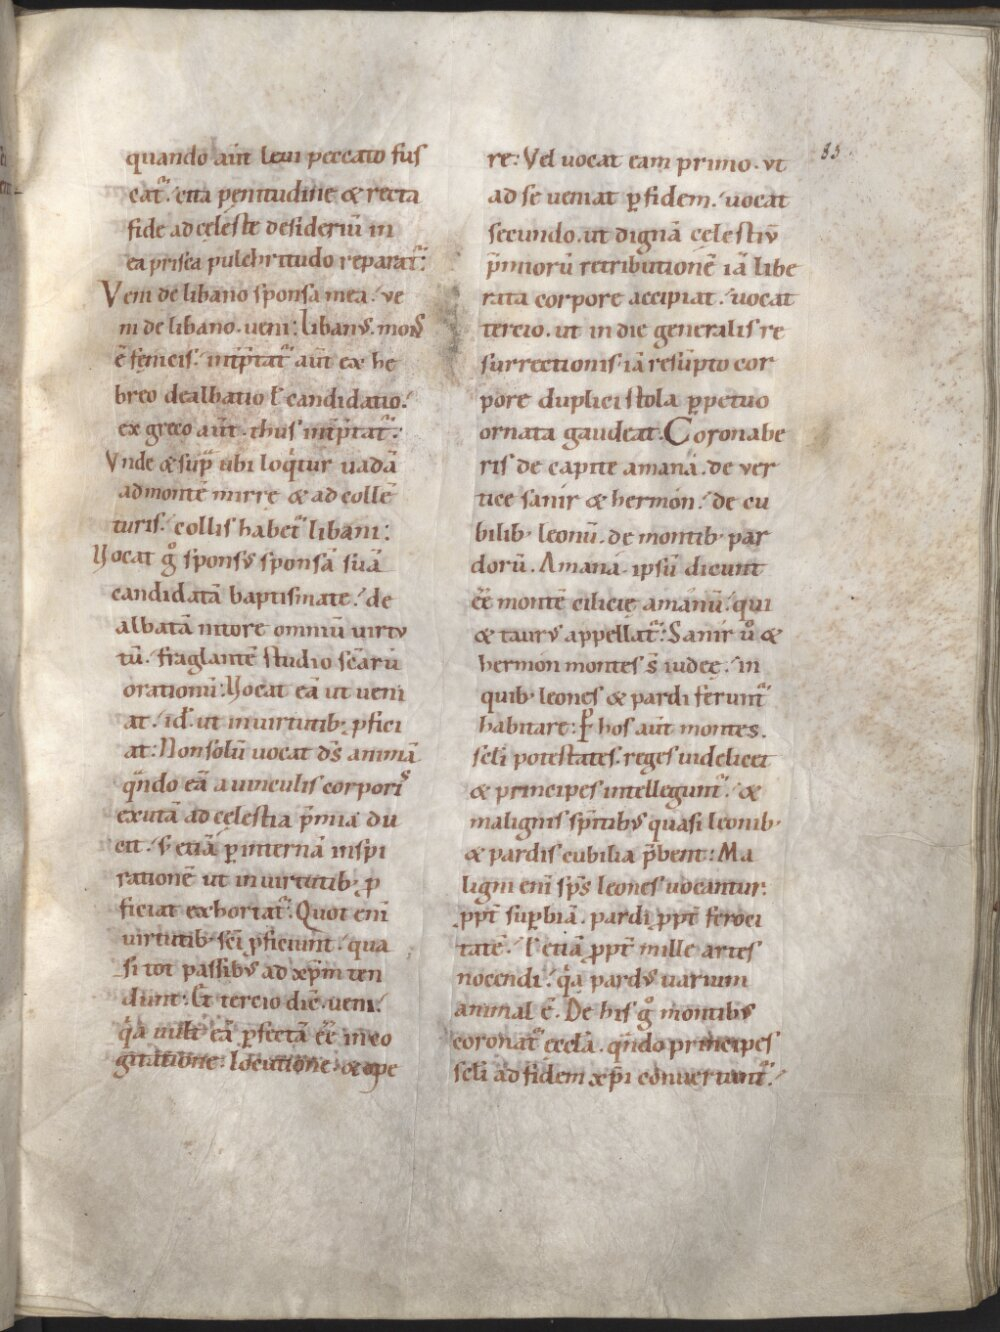 quando aūt leui peccato fus
cat᷑. cita penitudine & recta
fide ad cęleste desideriū in
ea prisca pulchritudo reparat᷑:
Veni de libano sponsa mea. ve
ni de libano. ueni: libanꝰ. monſ
ē fenicis. int̄p̄tat᷑ aūt ex he
breo dealbatio ł candidatio.
ex greco aūt. thus int̄p̄tat᷑:
Vnde & sup̄ ubi loq̄tur uadā
ad montē mirre & ad collē
turis. collis habet᷑ libani:
Vocat g̊ sponsꝰ sponsā suā
candidatā baptismate. de
albatā nitore omniū uirtv
tū. fraglantē studio sc̄arū
orationū: Vocat eā ut veni
at. id ut in uirtutib; ꝓfici
at: Non solū vocat d̄s animā
q̄ndo eā a uinculis corporiſ
exutā ad cęlestia p̄mia du
cit. s; etiā ꝑ internā inspi
rationē ut in uirtutib; ꝓ
ficiat exhortat᷑. Quot enī
uirtutib; sc̄i ꝓficiunt. qua
si tot passibꝰ ad xp̄m ten
dunt: Et tercio dic̄. veni.
q̄a uult eā ꝑfectā eē̄ in co
gitatione. locutione. & ope
re: Vel uocat eam primo. vt
ad se ueniat ꝑ fidem. uocat
secundo. ut dignā cęlestiū
p̄miorū retributionē iā libe
rata corpore accipiat. uocat
tercio. ut in die generalis re
surrectionis. iā resūpto cor
pore duplici stola ꝑpetuo
ornata gaudeat. Coronabe
ris de capite amaná. de ver
tice sanir & hermón. de cu
bilib; leonū. de montib; par
dorū. Amaná ipsū dicunt
eē̄ montē cilicię amánū. qui
& taurꝰ appellat᷑: Sanir ů &
hermón montes s̄ iudeę. in
quib; leones & pardi ferunt᷑
habitare: P̲ hos aūt montes.
scl̄i potestates. reges uidelicet
& principes intellegunt᷑. &
malignis sp̄itibꝰ quasi leonib;
& pardis cubilia p̄bent: Ma
ligni enī sp̄s leones uocantur:
ꝓpt̄ suꝑbiā. pardi ꝓpt̄ feroci
tatē. ł etiā ꝓpt̄ mille artes
nocendi. q̄a pardꝰ uarium
animal ē. De his g̊ montibꝰ
coronat᷑ eccl̄a. q̄ndo principes
scl̄i ad fidem xp̄i conuertunt᷑.
85